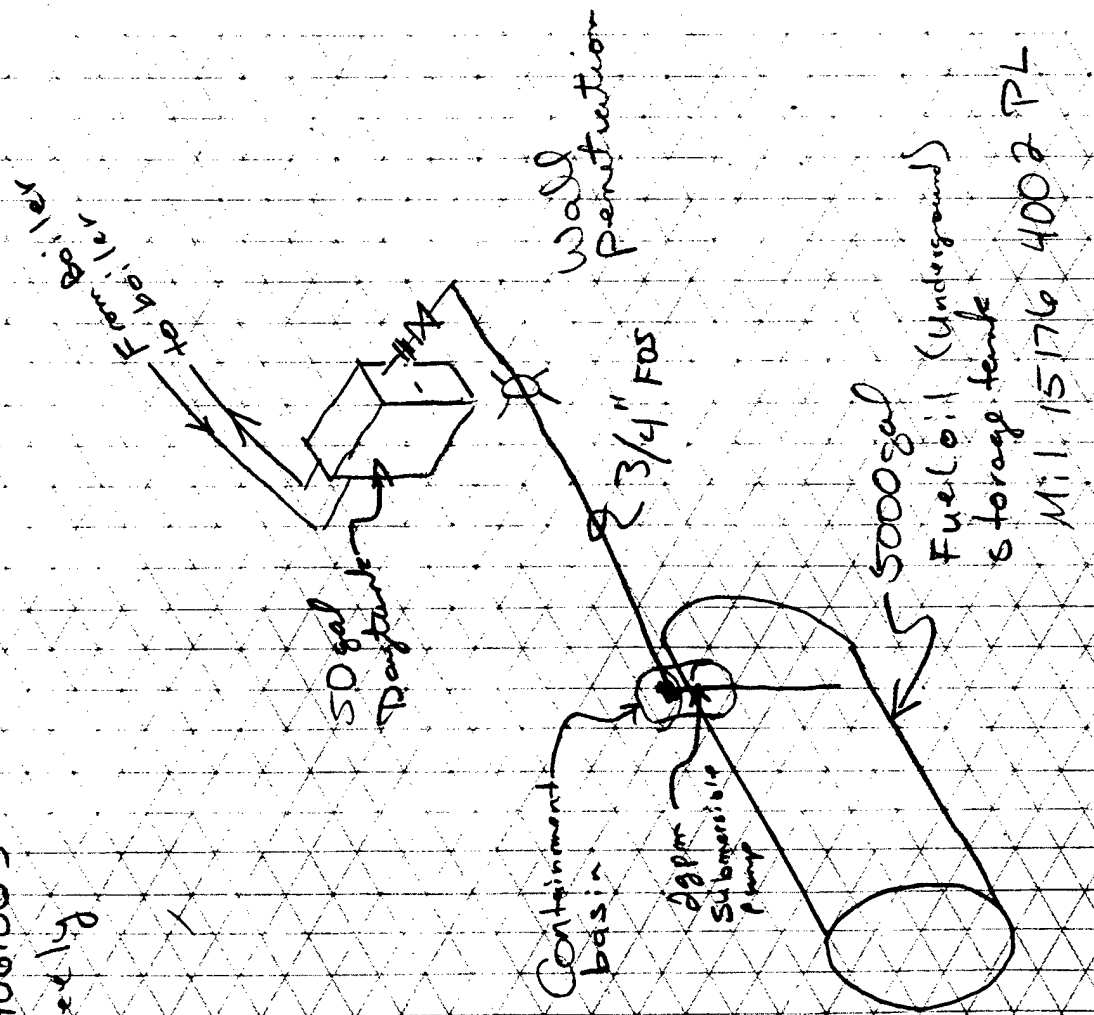 From Boiler
to boiler
50 gal
Daytank
Wall
Penetration
3/4" FOS
Containment
basin
2gpm
Submersible
pump
5000gal
Fuel oil (Underground)
Storage tank
Mil. 15176 4002 PL